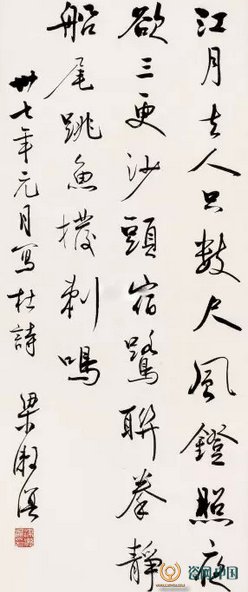 江月去人只數尺風鐙照夜
欲三更沙頭宿鷺聯拳靜
船尾跳魚撥刺鳴
卅七年元月寫杜詩 梁漱溟
中国